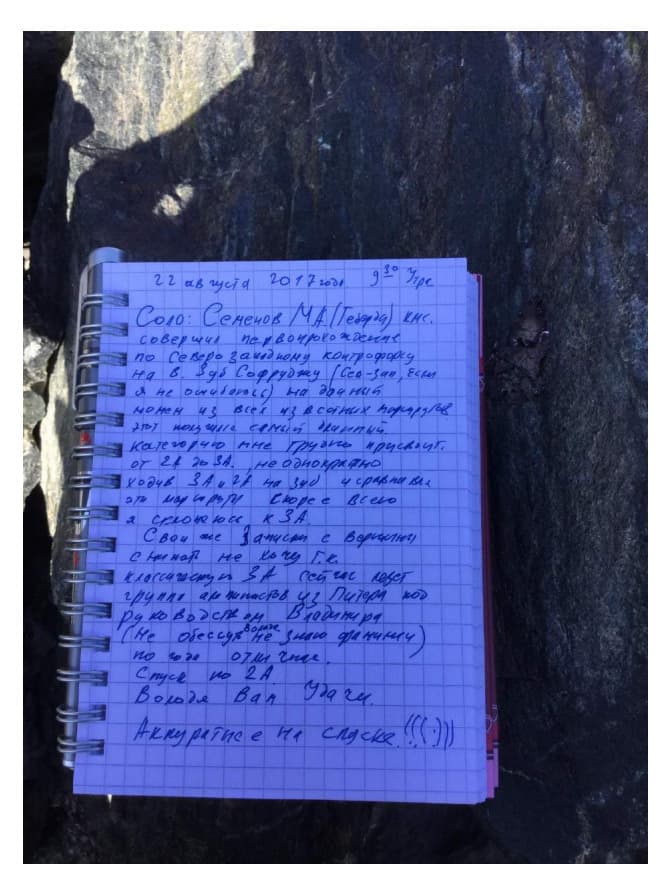 22 августа 2017 года 9 30 Утра
Соло: Семенов М.А. (Теберда) кмс.
совершил первопрохождение
по Северо Западному контрфорсу
на В. Зуб Софруджу (Сев-зап, если
я не ошибаюсь) на данный
момен из всех из вестных маршрутов
этот получился самый длинный.
Категорию мне трудно присвоить.
от 2А до 3А. неоднократно
ходив 3А и 2А на зуб и сравнивая
эти маршруты скорее всего
я склоняюсь к 3А.
Свои же Записки с вершины
снимать не хочу т.к.
классическую 3А сейчас идет
группа альпинистов из Питера под
руководством Владимира
(Не обессуть Володя не знаю фамилии)
погода отличная.
Спуск по 2А.
Володя Вам Удачи.
Аккуратнее на спуске!!(((:)))